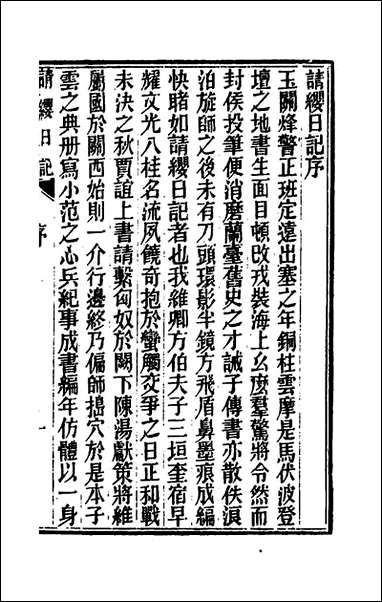 請纓日記序
玉關烽警正班定遠出塞之年銅柱雲摩是馬伏波登
壇之地書生面目頓改戎裝海上幺麽羣驚將令然而
封侯投筆便消磨蘭臺舊史之才誡子傳書亦散佚浪
泊旋師之後未有刀頭環影半鏡方飛盾鼻墨痕成編
快睹如請纓日記者也我維卿方伯夫子三垣奎宿早
耀文光八桂名流夙饒奇抱於蠻觸交爭之日正和戰
未決之秋賈誼上書請繫匈奴於闕下陳湯獻策將維
屬國於關西始則一介行邊終乃偏師搗穴於是本子
雲之典册寫小范之心兵紀事成書編年仿體以一身
請纓日記
序
一